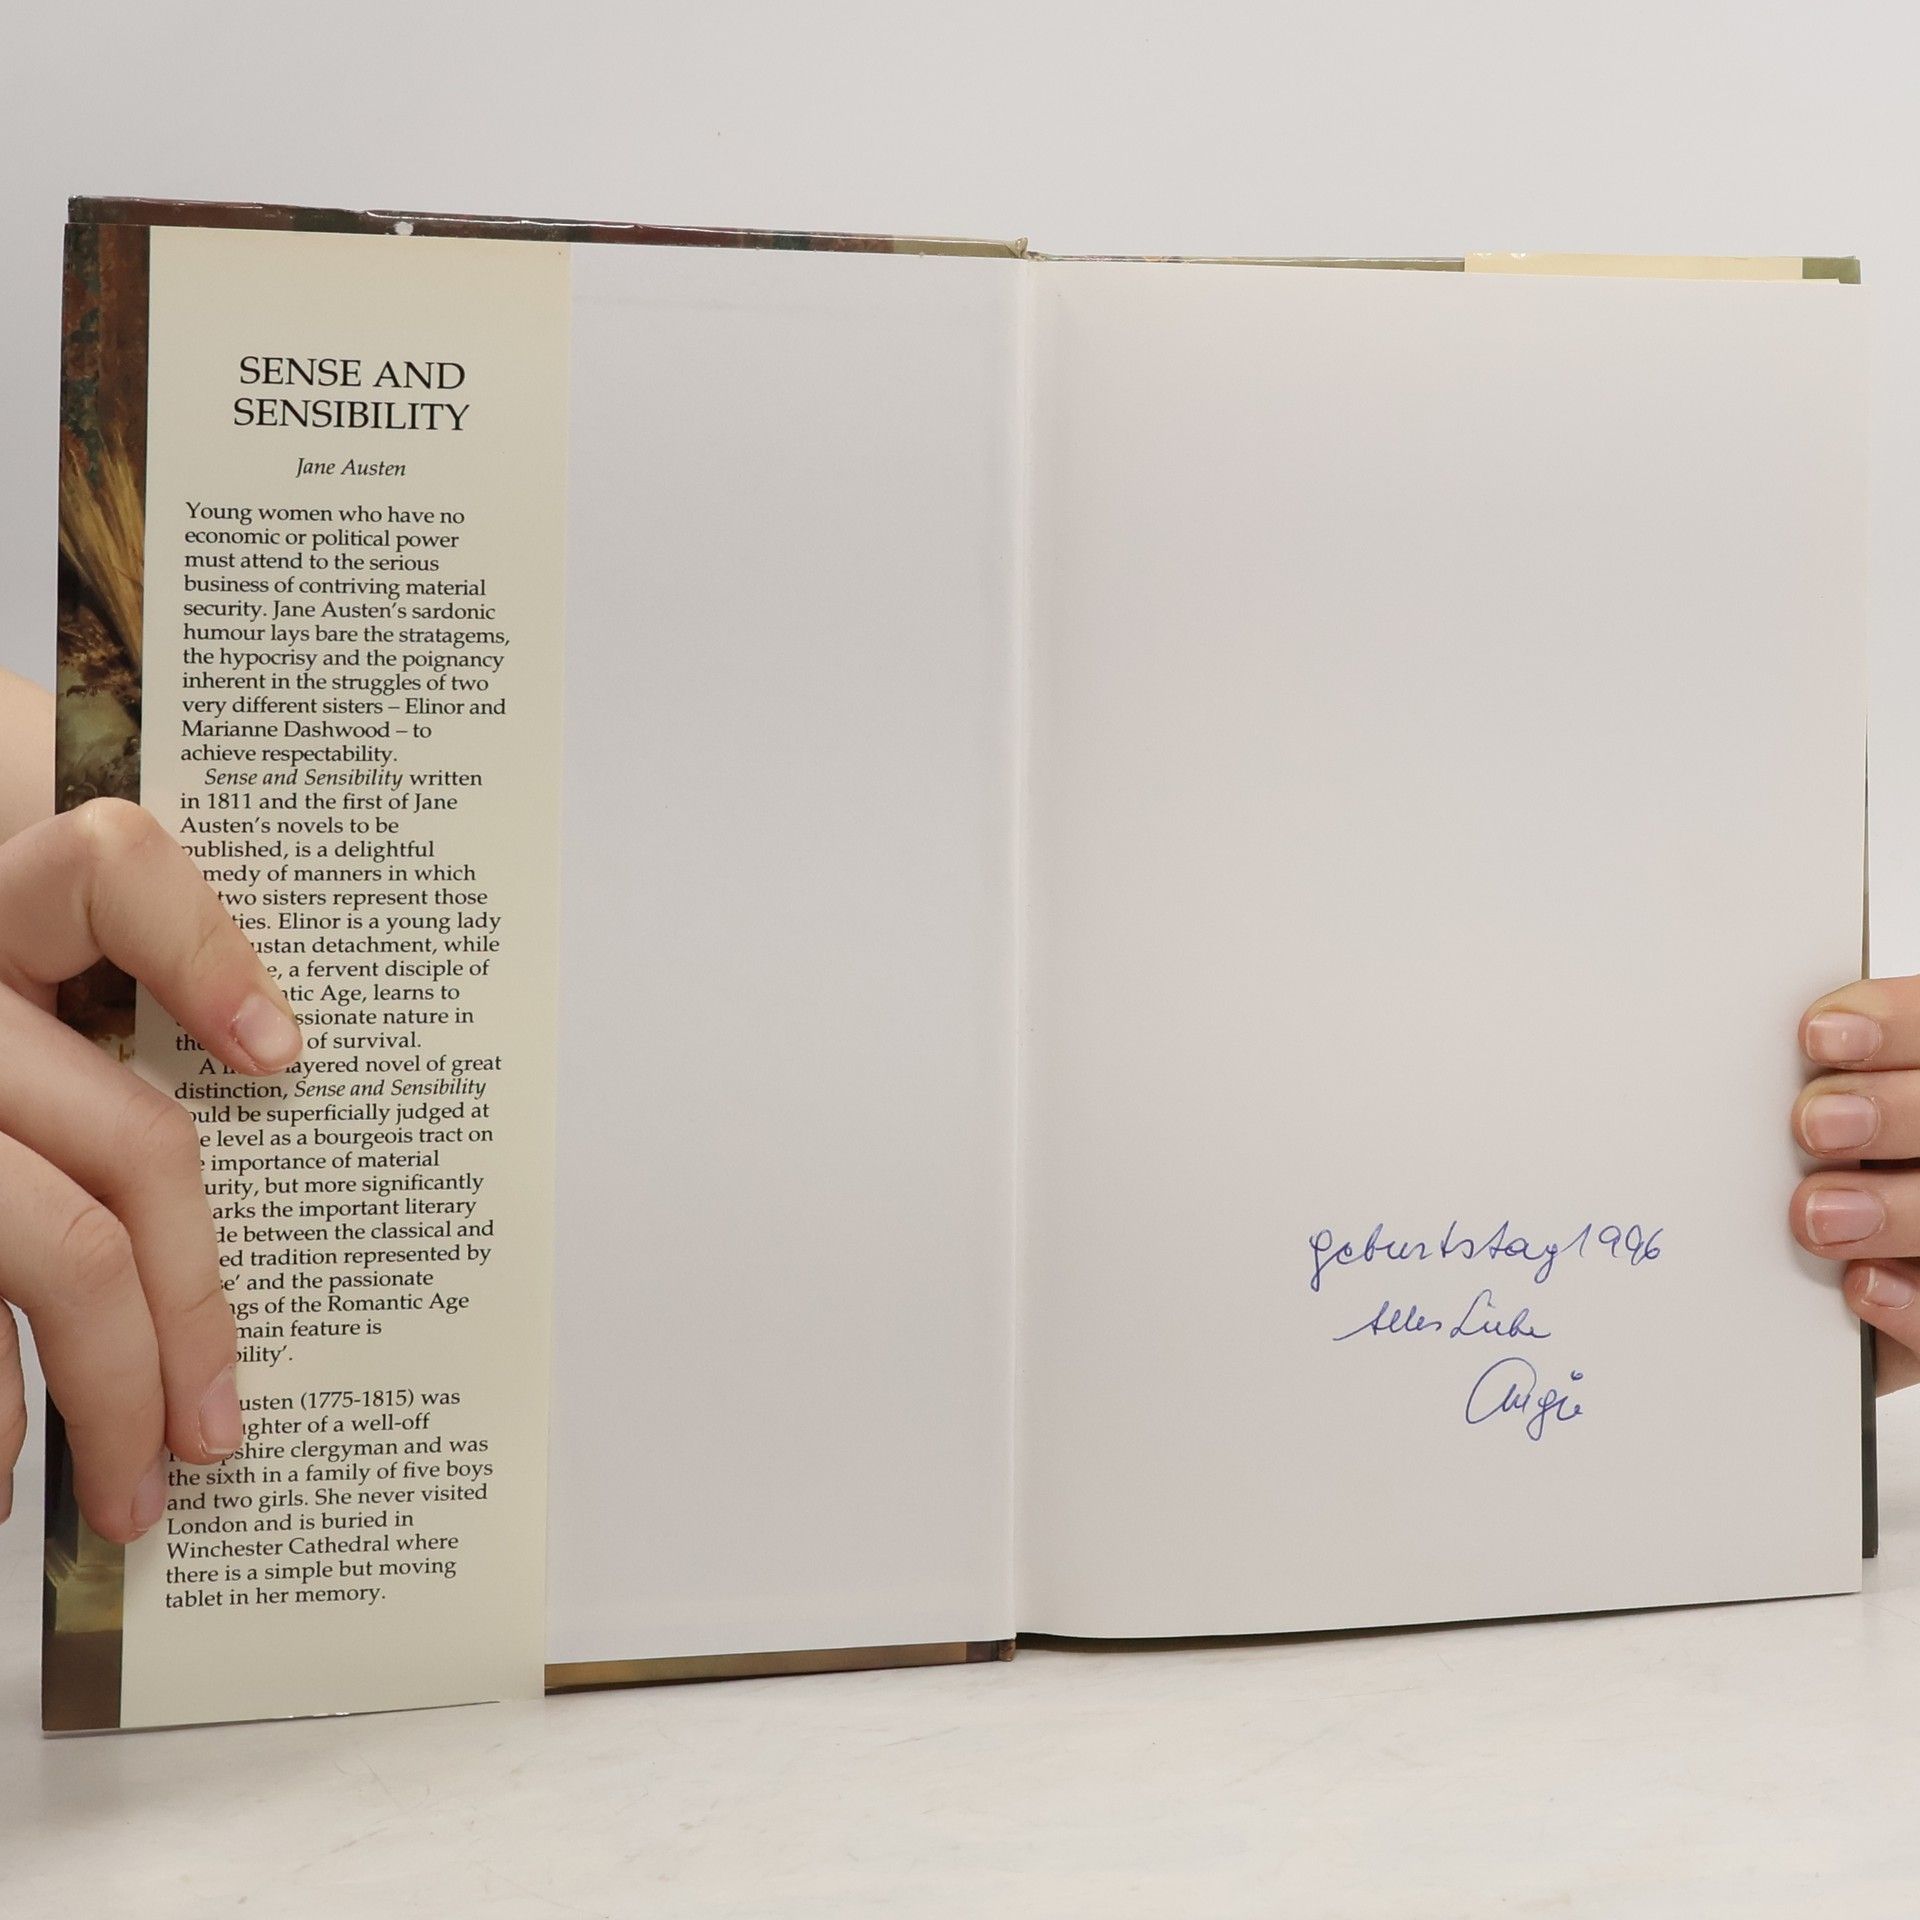 SENSE AND
SENSIBILITY
Jane Austen
Young women who have no
economic or political power
must attend to the serious
business of contriving material
security. Jane Austen's sardonic
humour lays bare the stratagems,
the hypocrisy and the poignancy
inherent in the struggles of two
very different sisters – Elinor and
Marianne Dashwood – to
achieve respectability.
Sense and Sensibility written
in 1811 and the first of Jane
Austen's novels to be
published, is a delightful
medy of manners in which
two sisters represent those
ties. Elinor is a young lady
ustan detachment, while
e, a fervent disciple of
ntic Age, learns to
ssionate nature in
the of survival.
A layered novel of great
distinction, Sense and Sensibility
ould be superficially judged at
e level as a bourgeois tract on
e importance of material
urity, but more significantly
arks the important literary
de between the classical and
ed tradition represented by
se' and the passionate
ngs of the Romantic Age
main feature is
bility'.
usten (1775-1815) was
ughter of a well-off
pshire clergyman and was
the sixth in a family of five boys
and two girls. She never visited
London and is buried in
Winchester Cathedral where
there is a simple but moving
tablet in her memory.
Geburtstag 1996
Alles Liebe
Angie